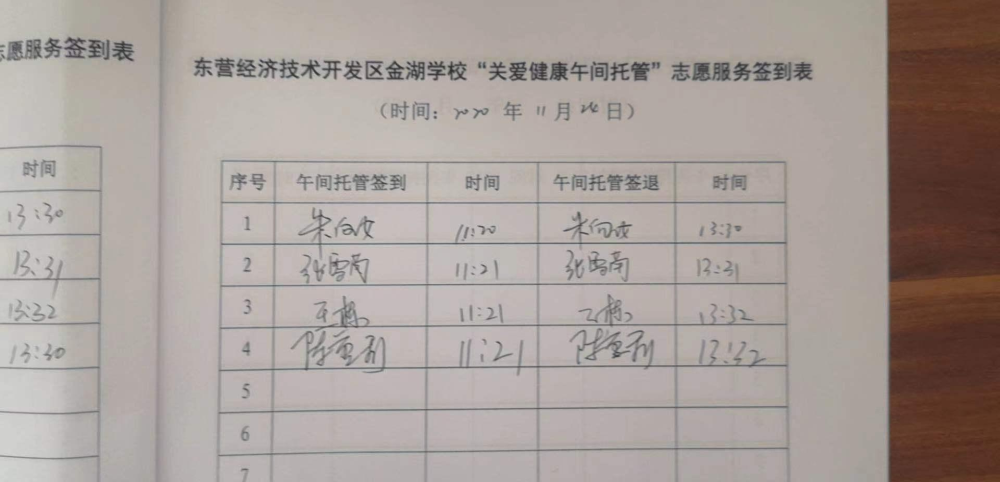 志愿服务签到表
时间
13:30
13:31
13:32
13:30
东营经济技术开发区金湖学校“关爱健康午间托管”志愿服务签到表
（时间：2020 年 11 月 24 日）
序号 午间托管签到 时间 午间托管签退 时间
1 11:20 13:30
2 张雪南 11:21 张雪南 13:31
3 王栋 11:21 王栋 13:32
4 11:21 13:32
5
6
7